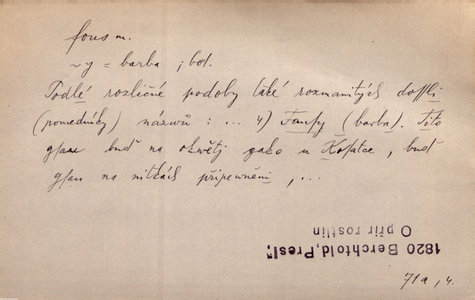 fous m.
~y = barba ; bot.
Podlé rozličné podoby také rozmanitých došli
(ponenáhlu) názwů : ... 4) Fausy (barba). Tito
gsau buď na okwětj gako u Kosatce, buď
gsau na nitkách připewněni , ...
1820 Berchtold, Presl,
O přir rostlin
71a, 4.